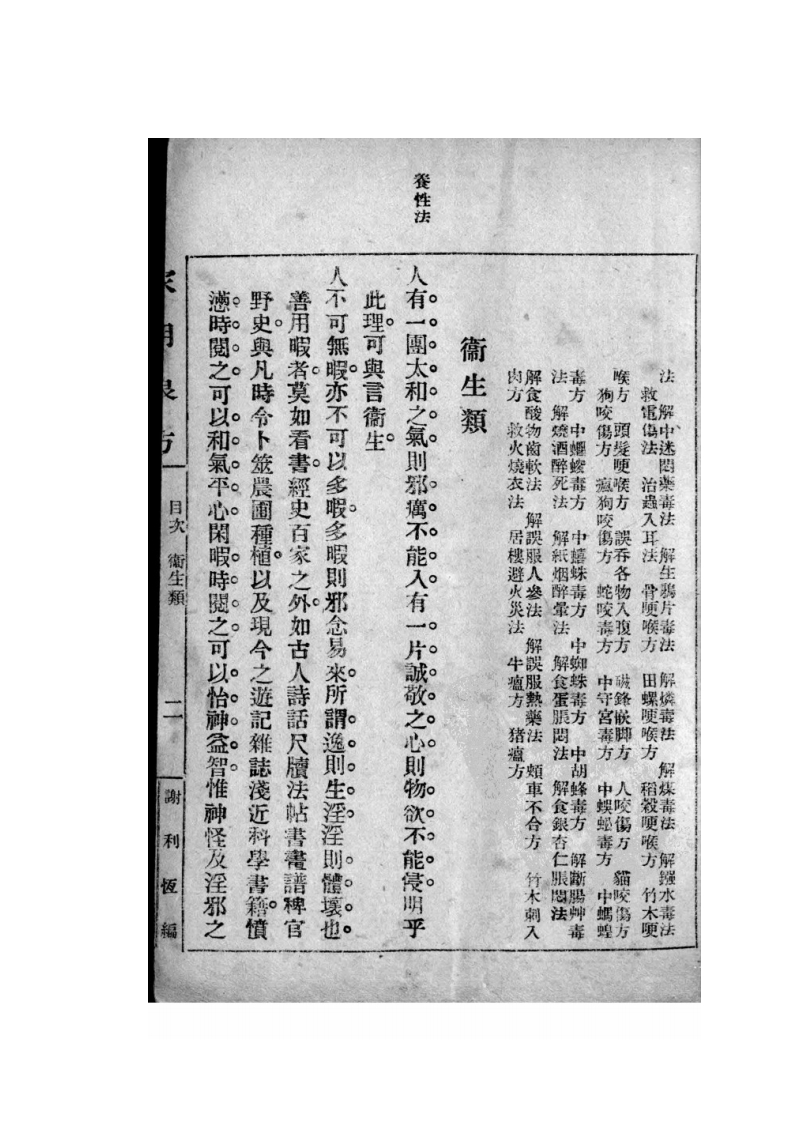 養性法
法　解中迷悶藥毒法　解生鴉片毒法　解燐毒法　解煤毒法　解鏹水毒法
救電傷法　治蟲入耳法　骨哽喉方　田螺哽喉方　稻穀哽喉方　竹木哽
喉方　頭髮哽喉方　誤吞各物入腹方　磁鋒嵌脚方　人咬傷方　貓咬傷方
狗咬傷方　瘋狗咬傷方　蛇咬毒方　中守宮毒方　中蜈蚣毒方　中螞蝗
毒方　中蠼螋毒方　中蟢蛛毒方　中蜘蛛毒方　中胡蜂毒方　解斷腸艸毒
法　解燒酒醉死法　解紙烟醉暈法　解食蛋脹悶法　解食銀杏仁脹悶法
解食酸物齒軟法　解誤服人參法　解誤服熱藥法　頰車不合方　竹木刺入
肉方　救火燒衣法　居樓避火災法　牛瘟方　猪瘟方
衞生類
人有一團太和之氣。則邪癘不能入。有一片誠敬之心。則物欲不能侵。明乎
此理。可與言衞生。
人不可無暇。亦不可以多暇。多暇則邪念易來。所謂逸則生淫。淫則體壞也。
善用暇者。莫如看書。經史百家之外。如古人詩話尺牘法帖書畫譜稗官
野史。與凡時令卜筮農圃種植。以及現今之遊記雜誌淺近科學書籍。憤
懣時閱之。可以和氣平心。閑暇時閱之。可以怡神益智。惟神怪及淫邪之
方
目次　衞生類
二
謝利恆編